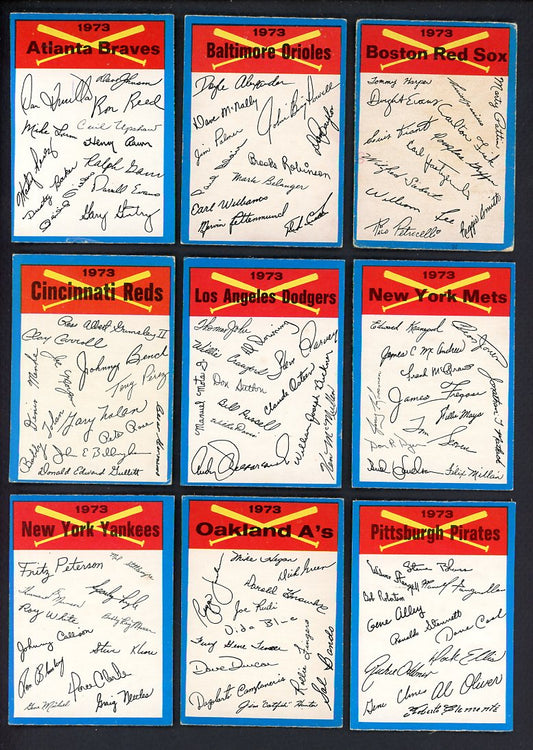 1973
Atlanta Braves
Dave Johnson
Ron Reed
Mike Lum
Cecil Upshaw
Henry Aaron
Ralph Garr
Dusty Baker
Darrell Evans
1973
Baltimore Orioles
Doyle Alexander
Dave McNally
John "Boog" Powell
Jim Palmer
Brooks Robinson
Mark Belanger
Earl Williams
Mervin Rettenmund
1973
Boston Red Sox
Tommy Harper
Marty Pattin
Dwight Evans
Luis Tiant
Carlton Fisk
Carl Yastrzemski
Douglas Griffin
William Lee
Reggie Smith
Rico Petrocelli
1973
Cincinnati Reds
Ross Albert Grimsley II
Clay Carroll
Johnny Bench
Tony Perez
Denis Menke
Bobby Tolan
Gary Nolan
Pete Rose
John E Billingham
Donald Edward Gullett
1973
Los Angeles Dodgers
Thomas John
Al Downing
Willie Crawford
Steve Garvey
Don Sutton
Manuel Mota
Claude Osteen
Bill Russell
Willie Davis
1973
New York Mets
Edward Kranepool
James C McAndrew
Frank McGraw
James Fregosi
Willie Mays
Tom Seaver
Felix Millan
1973
New York Yankees
Mel Stottlemyre
Fritz Peterson
Sparky Lyle
Thurman Munson
Bobby Ray Murcer
Roy White
Johnny Callison
Steve Kline
Ron Blomberg
Horace Clarke
Gene Michael
Graig Nettles
1973
Oakland A's
Mike Hegan
Dick Green
Joe Rudi
Vida Blue
Fury Gene Tenace
Rollie Fingers
Dave Duncan
Sal Bando
Dagoberto Campaneris
Jim "Catfish" Hunter
1973
Pittsburgh Pirates
Steve Blass
Willie Stargell
Bob Robertson
Gene Alley
Renaldo Stennett
Dave Cash
Dock Ellis
Gene Clines
Al Oliver
Roberto Clemente